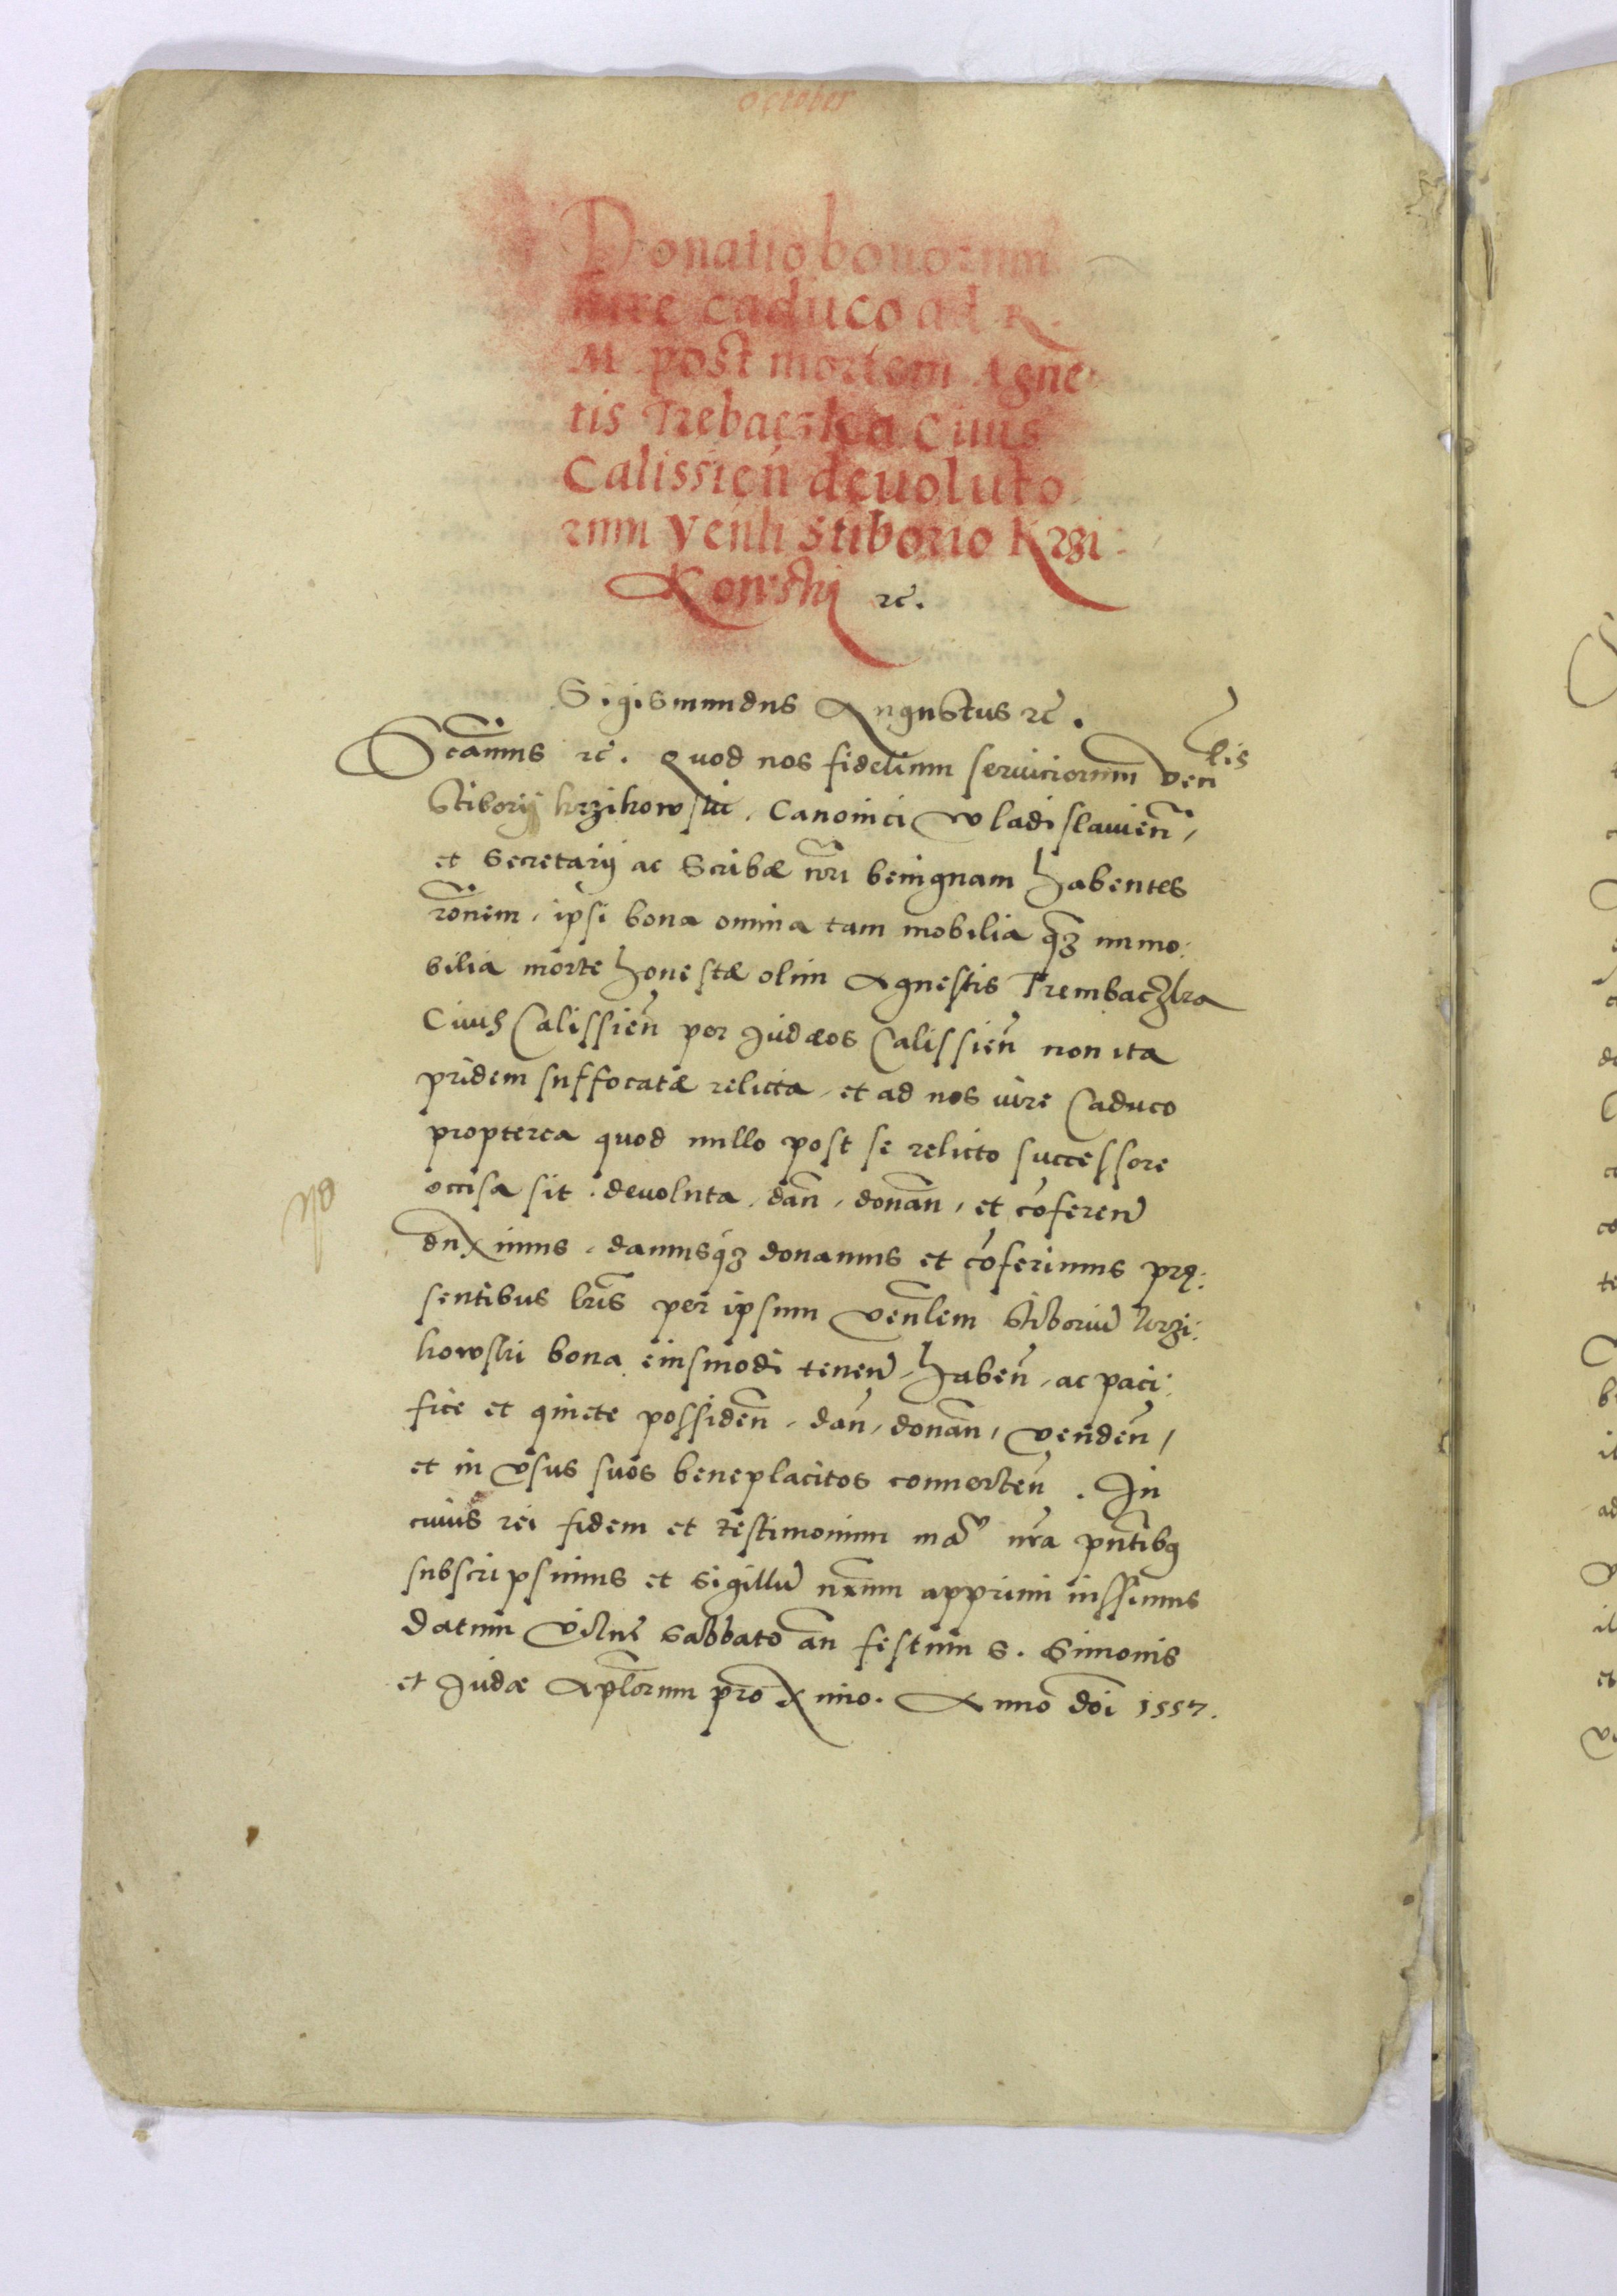 October
Donatio bonorum
iure caduco ad R.
M. post mortem Agne
tis Trebaczka Ciuis
Calissien̄ deuoluto
rum Ven̄li Stiborio Krzi:
Kowski ꝛc̄.
Sigismundus Augustus ꝛc̄.
Sc̄amus ꝛc̄. Quod nos fidelium seruiciorum Ven̄lis
Stiborij krzikowski, Canonici Wladislauien̄,
et Secretarij ac Scribæ nr̄i benignam habentes
rōnem, ipsi bona omnia tam mobilia qꝫ immo:
bilia morte honestæ olim Agnestis Trembaczka
Ciuis Calissien̄ per Judæos Calissien̄ non ita
pridem suffocatæ relicta, et ad nos iure Caduco
propterea quod nullo post se relicto successore
occisa sit, deuoluta, dan̄, donan̄, et cōferen̄
duximus, damusqꝫ donamus et cōferimus prę:
sentibus lr̄is per ipsum Ven̄lem Stiboriū krzi:
kowski bona eiusmodi tenen̄, haben̄, ac paci:
fice et quiete possiden̄, dan̄, donan̄, venden̄,
et in vsus suos beneplacitos conuerten̄. In
cuius rei fidem et testimonium manū nr̄a pn̄tibꝫ
subscripsimus et sigillū nr̄um apprimi iussimus
Datum Vilnæ Sabbato an̄ festum S. Simonis
et Judæ Apl̄orum proximo. Anno dn̄i 1557.